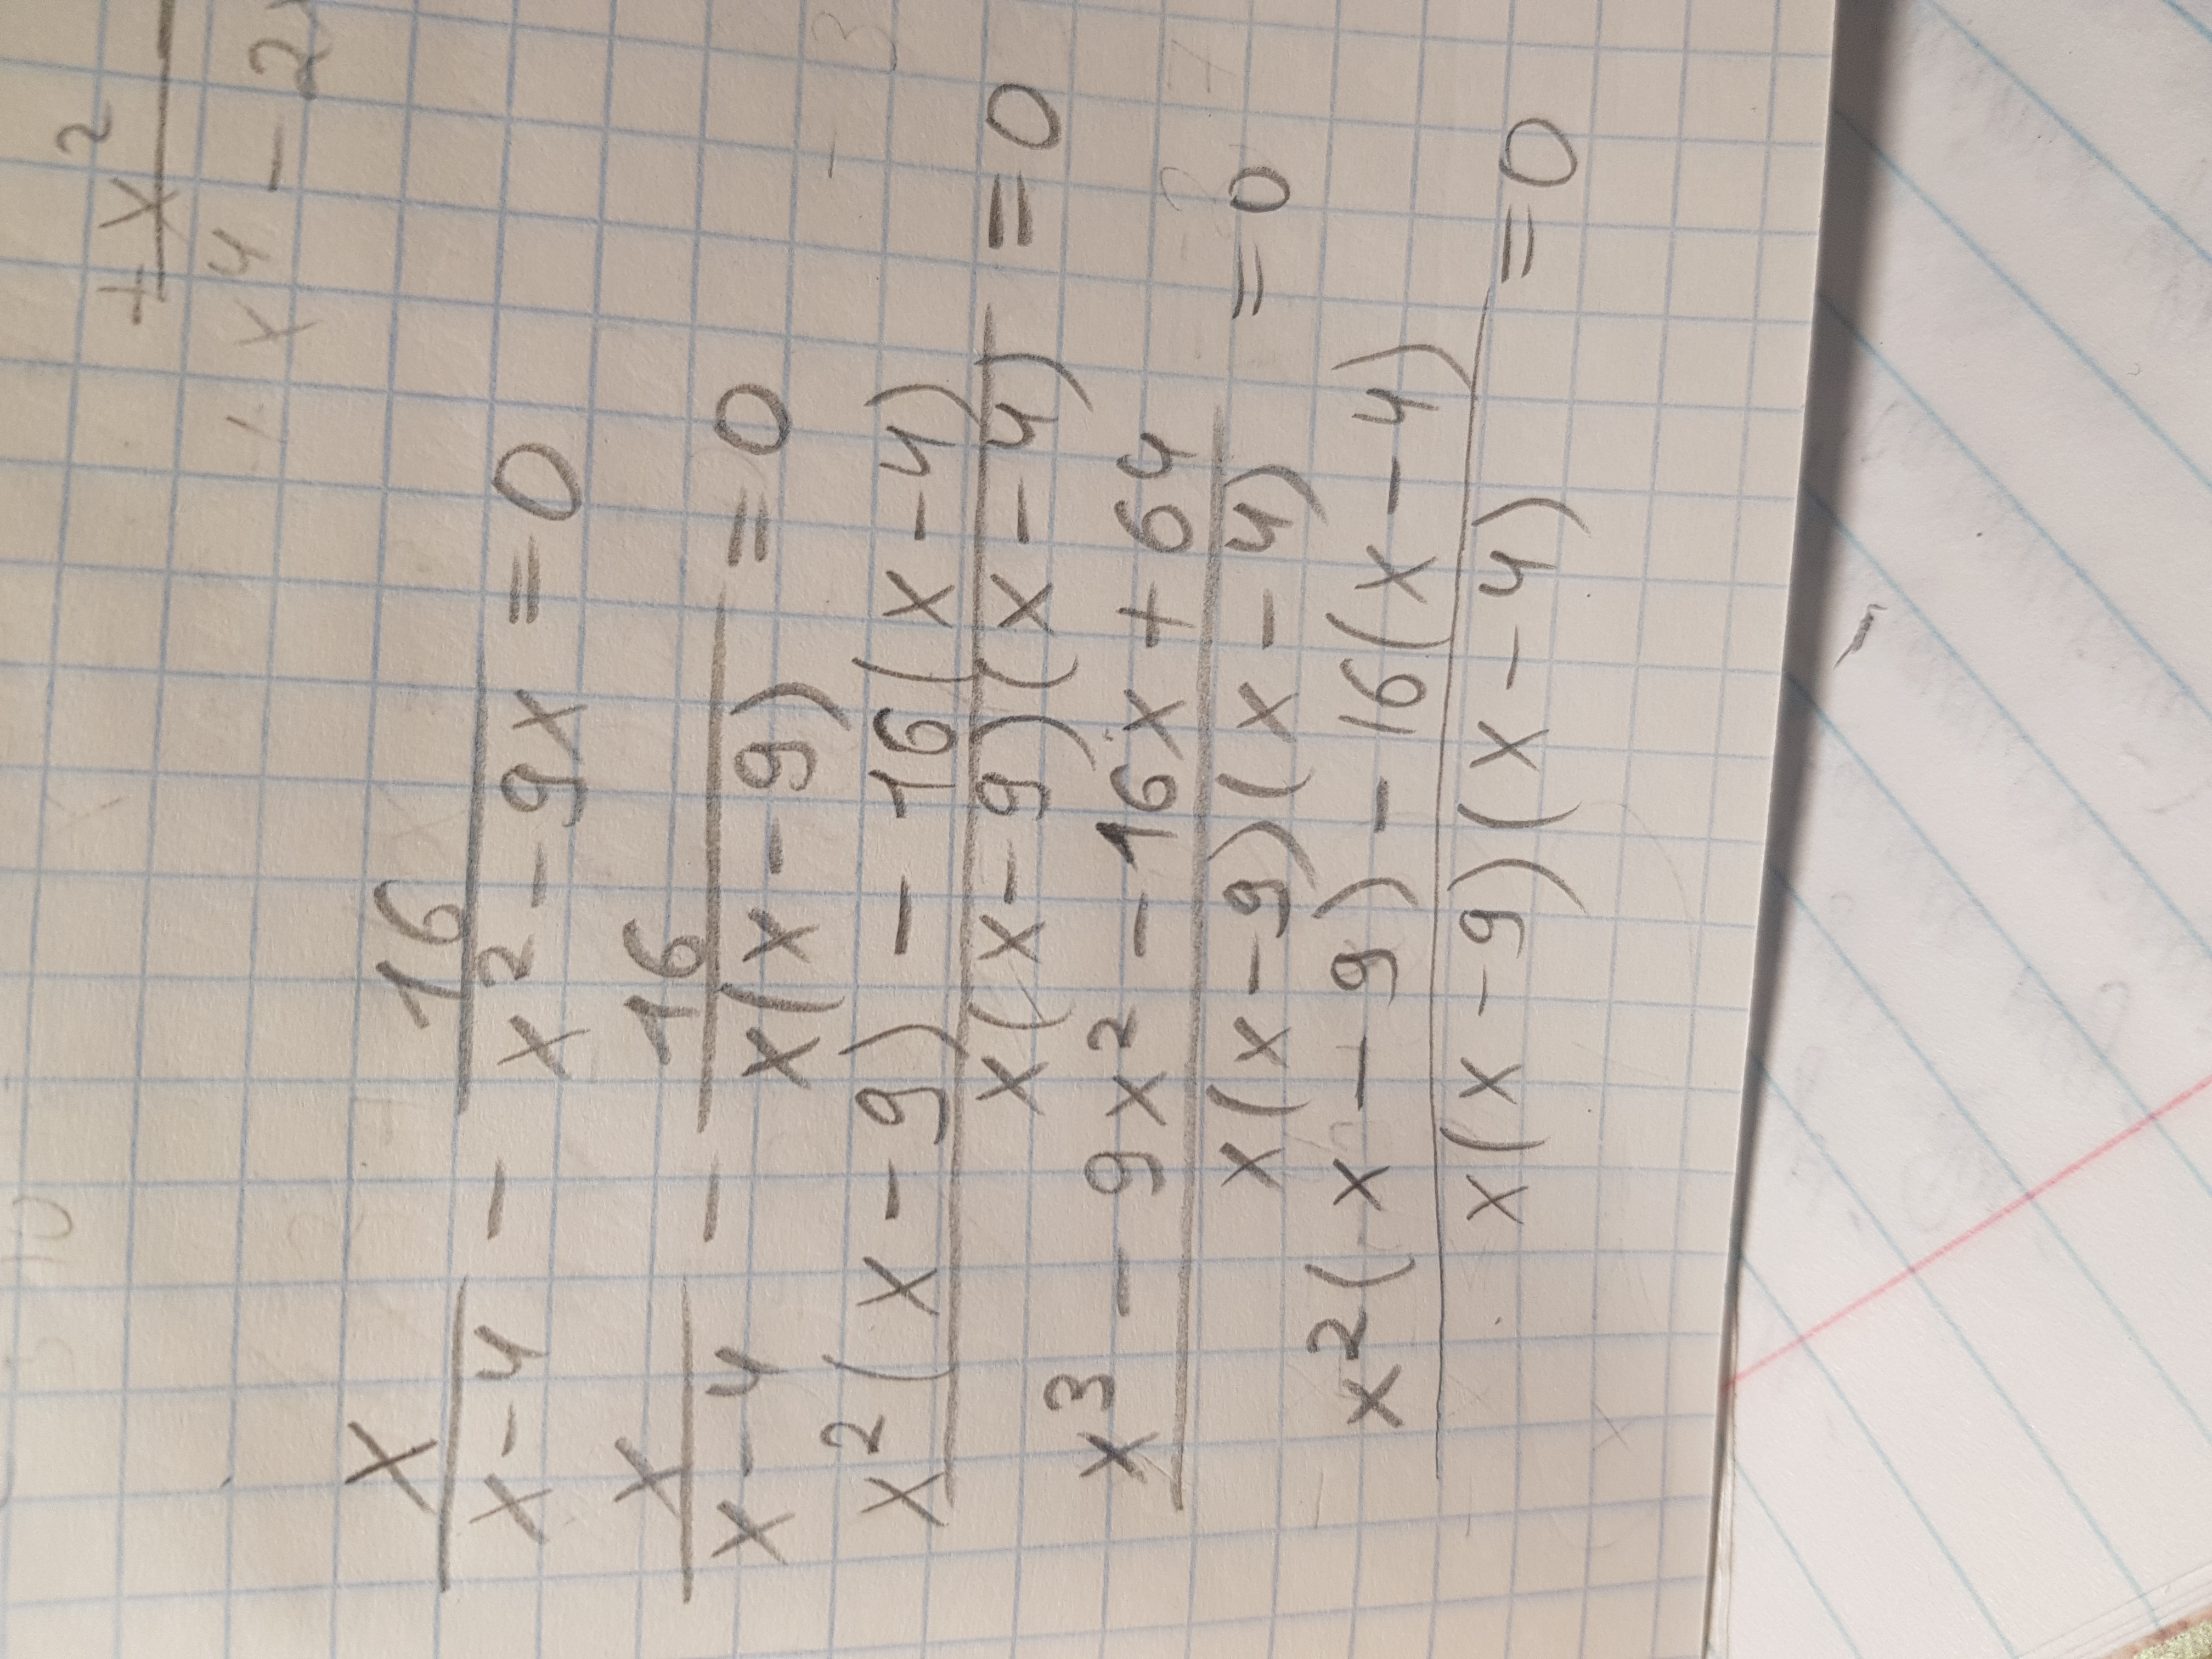 + x²
x⁴ - 2
x/(x-4) - 16/(x²-9x) = 0
x/(x-4) - 16/(x(x-9)) = 0
(x²(x-9) - 16(x-4))/(x(x-9)(x-4)) = 0
(x³ - 9x² - 16x + 64)/(x(x-9)(x-4)) = 0
(x²(x-9) - 16(x-4))/(x(x-9)(x-4)) = 0